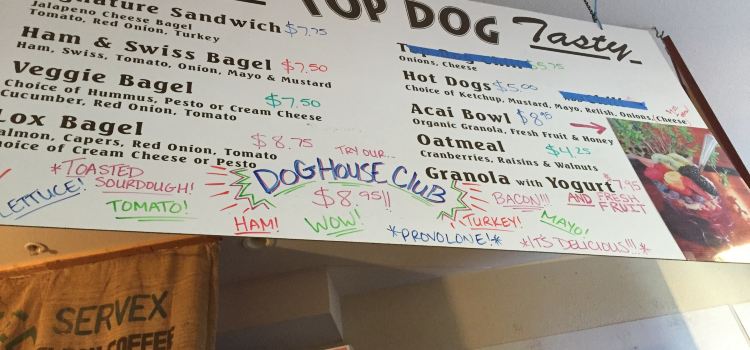 TOP DOG Tasty
Signature Sandwich $7.75
Jalapeno Cheese Bagel
Tomato, Red Onion, Turkey
Ham & Swiss Bagel $7.50
Ham, Swiss, Tomato, Onion, Mayo & Mustard
Veggie Bagel $7.50
Choice of Hummus, Pesto or Cream Cheese
Cucumber, Red Onion, Tomato
Lox Bagel $8.75
Salmon, Capers, Red Onion, Tomato
Choice of Cream Cheese or Pesto
$5.75
Onions, Cheese
Hot Dogs $5.00
Choice of Ketchup, Mustard, Mayo, Relish, Onions, Cheese
Acai Bowl
Organic Granola, Fresh Fruit & Honey
Oatmeal $4.25
Cranberries, Raisins & Walnuts
Granola with Yogurt $7.95
AND FRESH
FRUIT
TRY OUR...
DOGHOUSE CLUB
$8.95!!
LETTUCE!
*TOASTED
SOURDOUGH!
TOMATO!
HAM!
WOW!
*PROVOLONE!*
TURKEY!
BACON!!!
MAYO!
*IT'S DELICIOUS!!!*
SERVEX
COFFEE